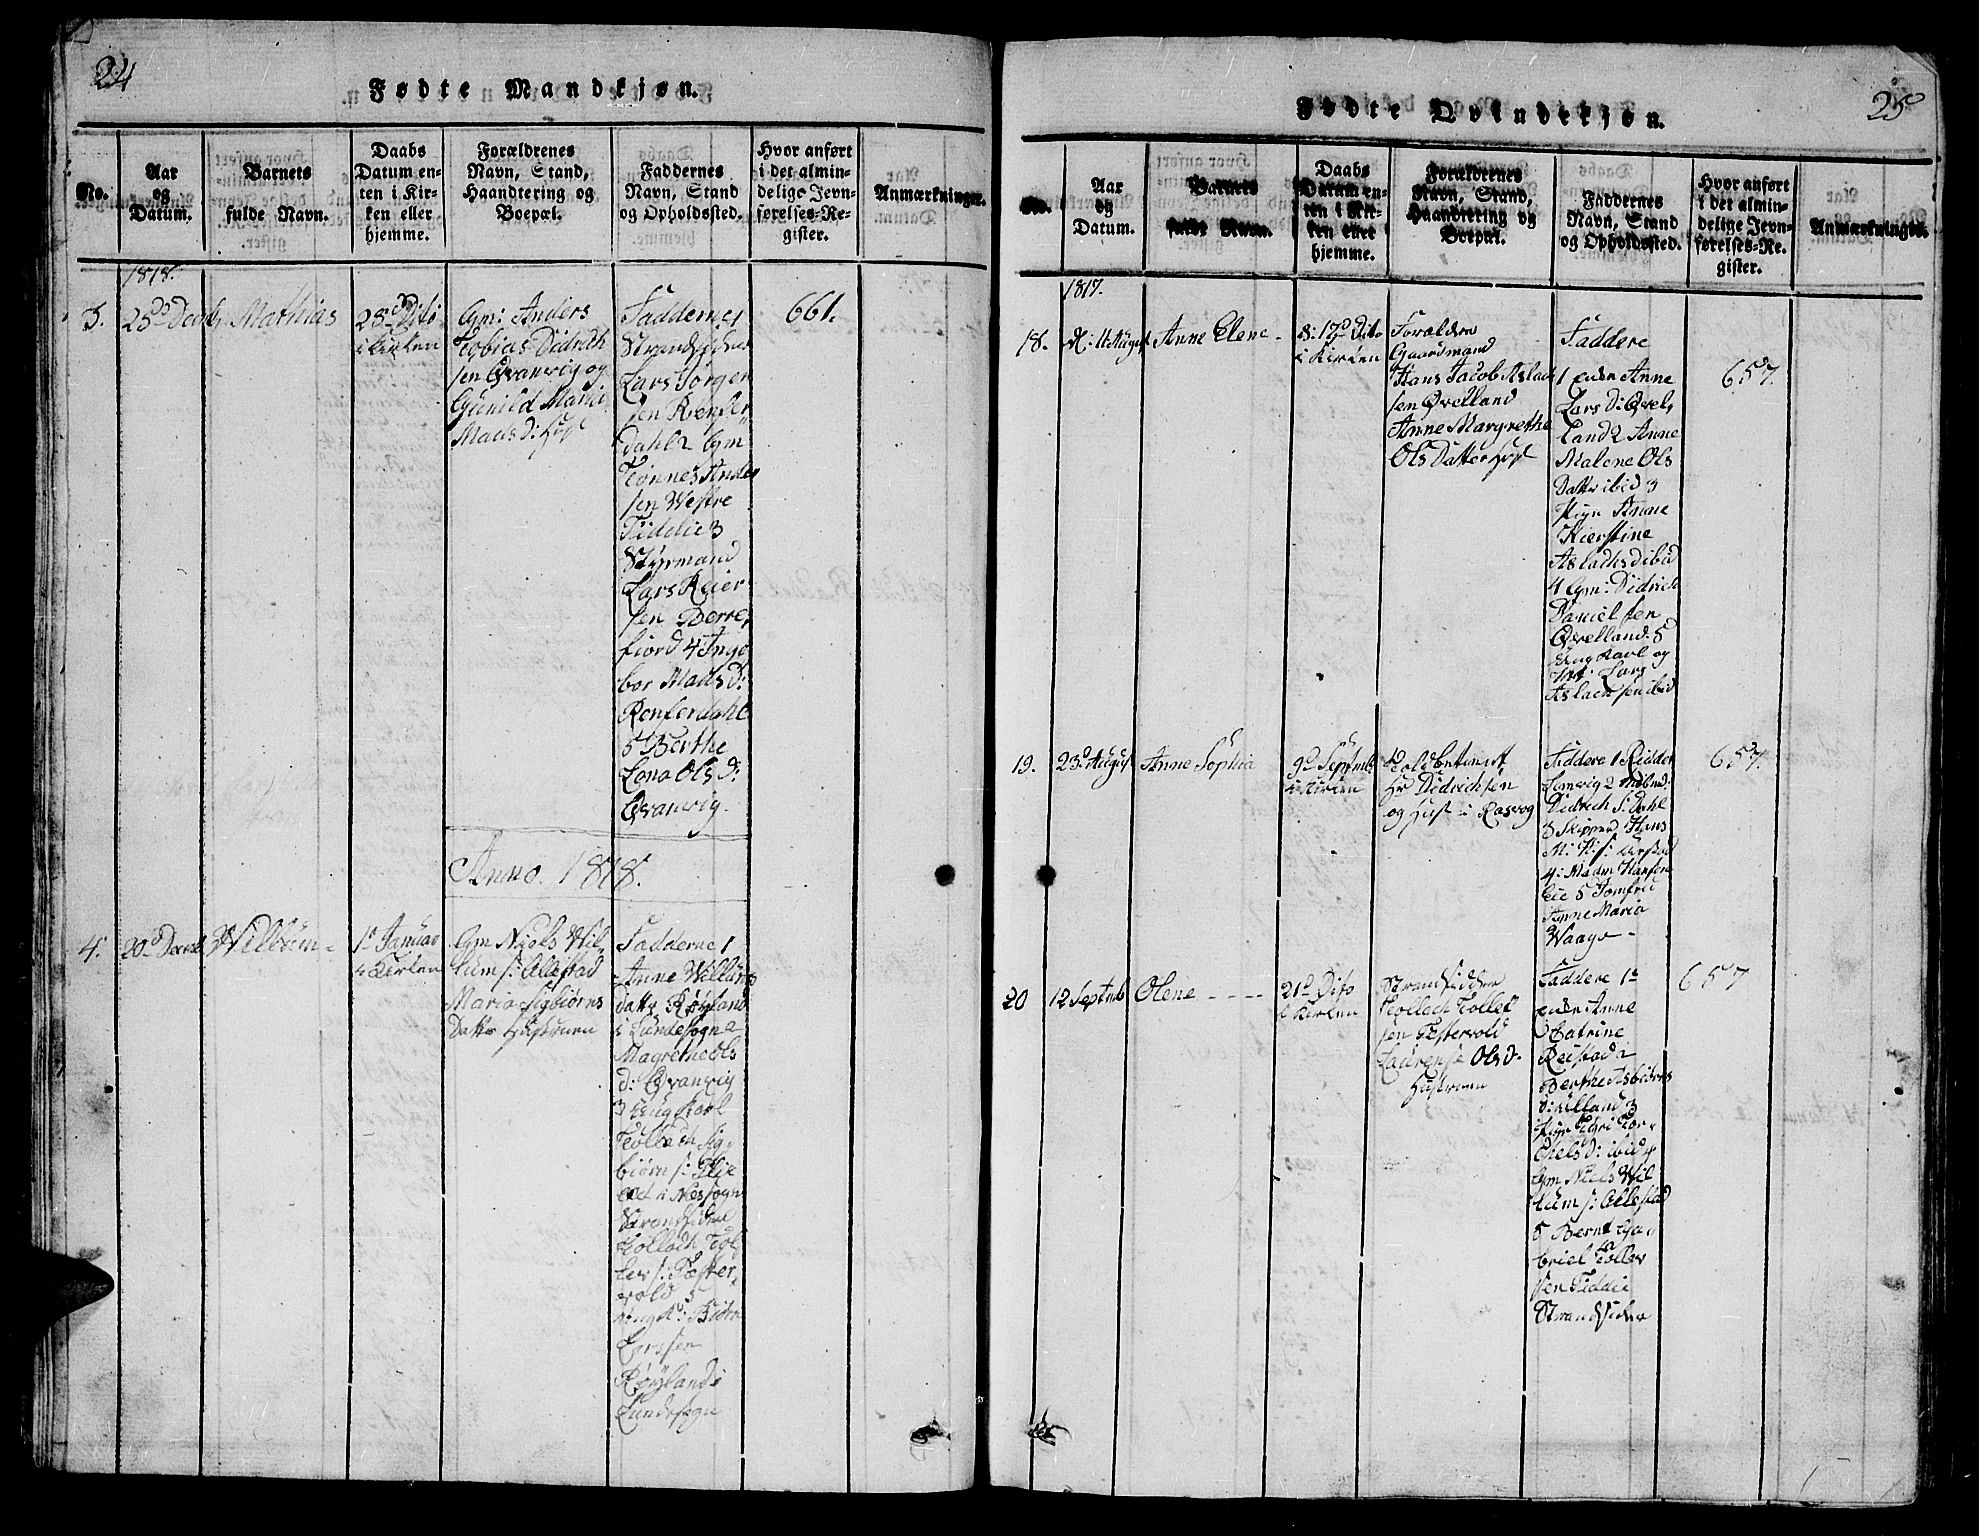 24
Fødte Mandkjøn.
No.
Aar
og
Datum.
Barnets
fulde Navn.
Daabs
Datum en-
ten i Kir-
ken eller
hjemme.
Forældrenes
Navn, Stand,
Haandtering og
Boepæl.
Faddernes
Navn, Stand
og Opholdssted.
Hvor anført
i det almin-
delige Jevn-
førelses-Re-
gister.
Anmærkninger.
1818.
3.
Mathias
28d Dito
i Kirken
Gm: Anders
Tobias Didrich
sen Qvanvig og
Gunild Maria
Mads D: Hust
Fadderne 1
Strandsidder
Lars Jørgen
sen Renser
dahl 2 Gm
Tønnes Ander
sen Westre
Fidelie 3
Styrmand
Lars Reier
sen Berre,
fiord 4 Inge
bor Mads d:
Renserdahl
5 Berthe
Lona Ols d:
Qvanvig.
661.
Anno. 1818.
4.
20d Decmb
Willum -
1d Januar
i Kirken
Gm Niels Wil,
lum s: Allestad
Maria Sigbiørns
Datter Hustruen
Fadderne 1
Anne Willums
datter Røyland
i Lundesogn 2
Magrethe Ols
d: Qvanvig
3 Ung Karl
Tollach Sig,
biørn s:
i Nessogn
Strandsidder
Tollach Tol
lev s: Fester,
vold 5
Ung K: Biørn
Larssen
Røyland i
Lundesogn
25
Fødte Qvindekjøn.
No.
Aar
og
Datum.
Barnets
fulde Navn.
Daabs
Datum en-
ten i Kir-
ken eller
hjemme.
Forældrenes
Navn, Stand,
Haandtering og
Boepæl.
Faddernes
Navn, Stand
og Opholdssted.
Hvor anført
i det almin-
delige Jevn-
førelses-Re-
gister.
Anmærkninger.
1817.
18.
Anne Elene -
17d Dito
i Kirken
Forældre
Gaardmand
Hans Jacob Aslach
sen Øvelland
Anne Margrethe
Ols Datter Hust
Faddere
1 Anne
Lars D: Øvel,
land 2 Anne
Malene Ols
Datter ibid 3
Pige Anne
Kierstine
Aslachs d ibid
4 Gm: Didrich
Daniel sen
Øvelland. 5
Ung Karl og
Lars
Aslachsen ibid
657.
19.
23d August
Anne Sophia
9d Septmb.
i Kirken
Toldbetient
Hr Didrichsen
og Hust i Rasvog
Faddere 1 Ridder
Lemvig 2
Didrich S: Dahl
3 Skipper Hans
4: Madm Hansen
Eie 5 Jomfru
Anne Maria
Waage -
657.
20
12 Septmb
Olene - - - -
21d Dito
i Kirken
Strandsidder
Tollach Tollef
sen Festervold
Laurense Ols d.
Hustruen
Faddere 1d
Anne
Catrine
Reistad 2
Berthe Asbiørns
d: Ulland 3
Pige Tor,
chels d: ibid 4
Gm Niels Wil
lum s: Allestad
5 Bernt Ga,
briel Tollev
sen Fiddie
Strandsidder
657